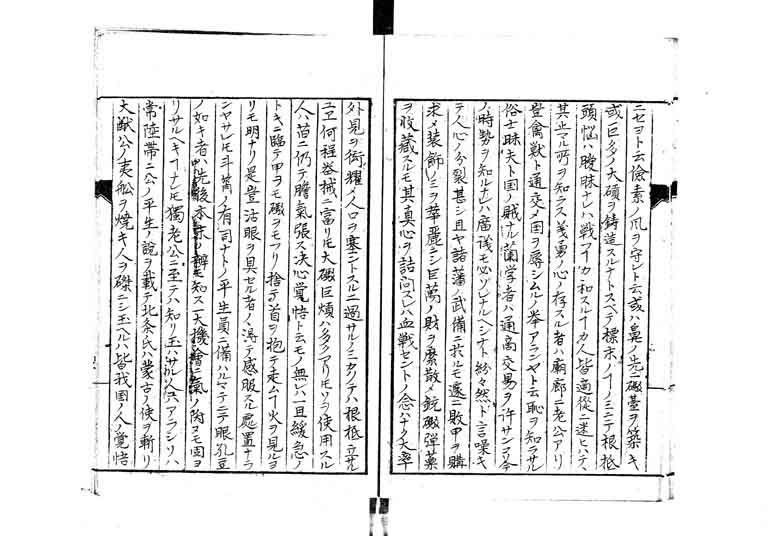 ニセヨト云儉素ノ風ヲ守レト云或ハ鼻ノ先ニ礮臺ヲ築キ
或ハ巨多ノ大碩ヲ鋳造スルナトスベテ標末ノ丁ノミニテ根柢
頭悩ハ曖昧ナレハ戦マイカ和スルイカ人皆適從ニ迷ヒハテ
其止マル所ヲ知ラス義勇ノ心ノ存スル者ハ廟廊ニ老公アリ
豈禽獣ト通交メ国ヲ辱シムルノ挙アランヤト云恥ヲ知ラサル
俗士昧夫ト国ノ賊ナル蘭学者ハ通商交易ヲ許サンヿ今
ノ時勢ヲ知ルナレハ廣議モ必ソレナルヘシナト紛々然ト言噪キ
テ人心ノ分裂甚シ且ヤ諸藩ノ武備ニ於ルモ遽ニ敗甲ヲ購
求メ装飾ノミヲ華麗ニシ巨萬ノ財ヲ糜散メ銃礮弾薬
ヲ收蔵スルモ其真心ヲ詰問スレハ血戦セントノ念ハナク大率
外見ヲ衒耀メ人口ヲ塞ントスルニ過サルノミカクノテハ根柢立サル
ユヱ何程器械ニ富リ𪜈大礮巨熕ハ多クアリ𪜈ソヲ使用スル
人ハ苗ニ仍テ膽氣張ス決心覚悟ト云モノ無レハ一旦緩急ノ
トキニ臨テ甲ヲモ礮ヲモフリ捨テ首ヲ抱テ走ムヿ火ヲ見ルヨ
リモ明ナリ是豈活眼ヲ具セル者ノ淂テ感服スル處置ナラ
シヤサレ𪜈斗筲ノ有司ナトノ平生員ニ備ハルマテニテ眼孔豆
ノ如キ者ハ先後本末ノ辨モ知ス一大機會ニ氣ノ附ヌモ固ヨ
リサルヘキヿナレ𪜈獨老公ニ至テハ知リ玉ハサル人六アラシソハ
常陸帯ニ公ノ平生ノ說ヲ載テ北条氏ハ蒙古ノ使ヲ斬リ
大猷公ノ夷船ヲ焼キ人ヲ磔ニシ玉ヘルハ皆我国ノ人ノ覚悟